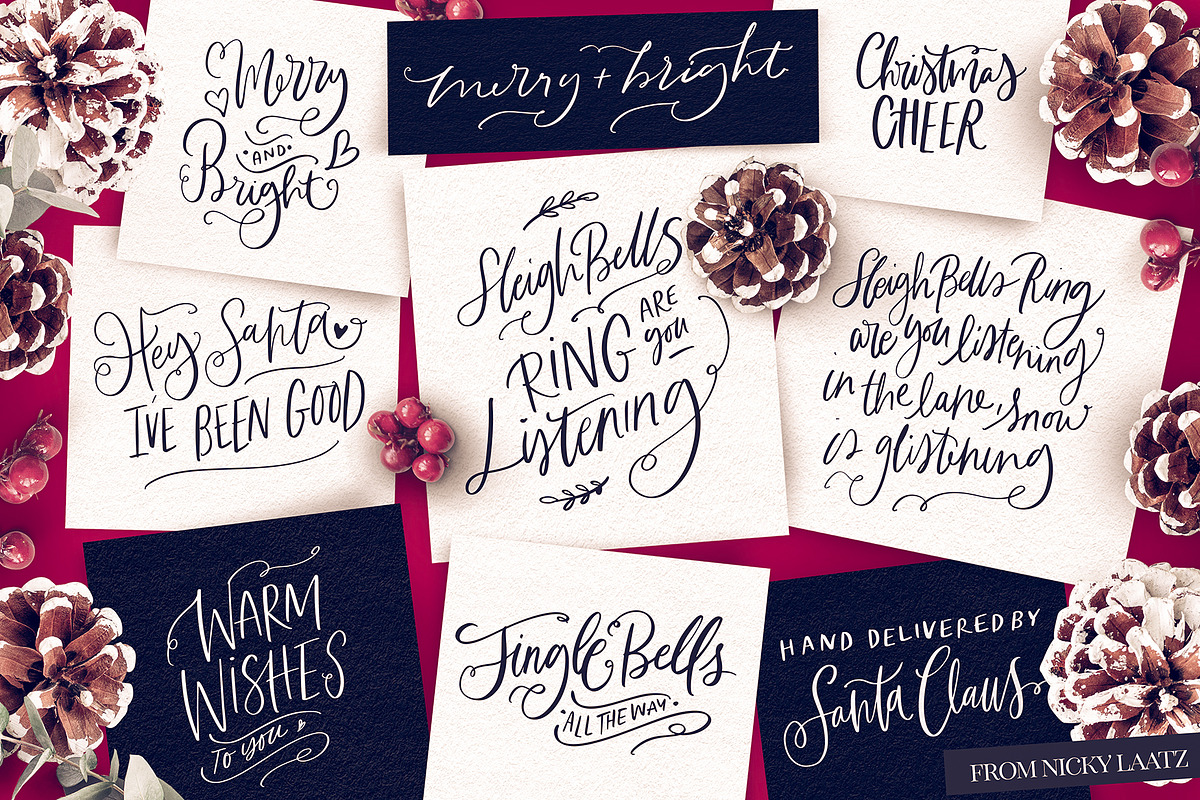 Merry
AND
Bright
merry + bright
Christmas
CHEER
Hey Santa
I'VE BEEN GOOD
Sleigh Bells
RING ARE
you
Listening
Sleigh Bells Ring
are you listening
in the lane, snow
is glistening
WARM
WISHES
TO you
Jingle Bells
ALL THE WAY
HAND DELIVERED BY
Santa Claus
FROM NICKY LAATZ